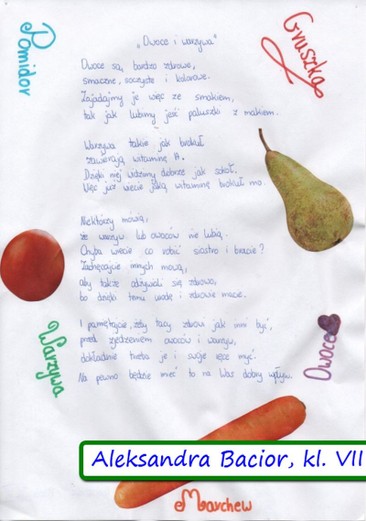 Pomidor
Gruszka
„Owoce i warzywa”
Owoce są bardzo zdrowe,
smaczne, soczyste i kolorowe.
Zajadajmy je więc ze smakiem,
tak jak lubimy jeść paluszki z makiem.
Warzywa takie jak brokuł
zawierają witaminę A.
Dzięki niej widzimy dobrze jak sokół,
Więc już wiecie jaką witaminę brokuł ma.
Niektórzy mówią,
że warzyw lub owoców nie lubią.
Chyba wiecie co robić siostro i bracie?
Zachęcajcie innych mową,
aby także odżywiali się zdrowo,
bo dzięki temu wagę i zdrowie macie.
I pamiętajcie, żeby tacy zdrowi jak inni być,
przed zjedzeniem owoców i warzyw,
dokładnie trzeba je i swoje ręce myć.
Na pewno będzie mieć to na Was dobry wpływ.
Warzywa
Owoce
Aleksandra Bacior, kl. VII
Marchew